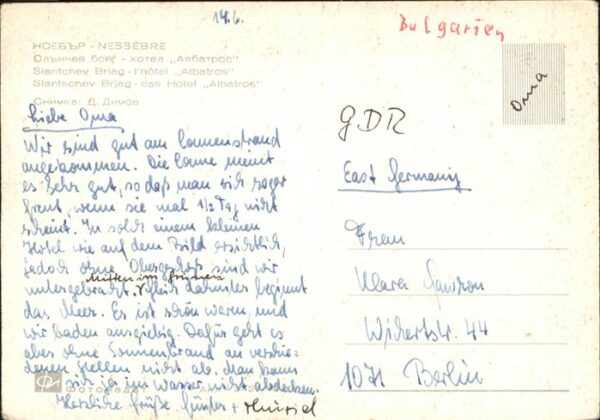 14.6.
Bulgarien
НЕСЕБЪР - NESSÈBRE
Слънчев бряг - хотел „Албатрос"
Slantchev Briag - l'hôtel „Albatros"
Slantschev Brjag - das Hotel „Albatros"
Снимка: Д. Димов
Oma
Liebe Oma
Wir sind gut am Sonnenstrand
angekommen. Die Sonne meint
es sehr gut, so daß man sich sogar
freut, wenn sie mal 1/2 Tag nicht
scheint. In solch einem kleinen
Hotel wie auf dem Bild ersichtlich,
jedoch ohne Obergeschoß sind wir
Mitten im Grünen
untergebracht. Gleich dahinter beginnt
das Meer. Es ist schön warm, und
wir baden ausgiebig. Dafür geht es
aber ohne Sonnenbrand an verschie-
denen Stellen nicht ab. Man kann
sich ja im Wasser nicht abdecken.
Herzliche Grüße Günter +
GDR
East Germany
Frau
Klara
Wichertstr. 44
1071 Berlin